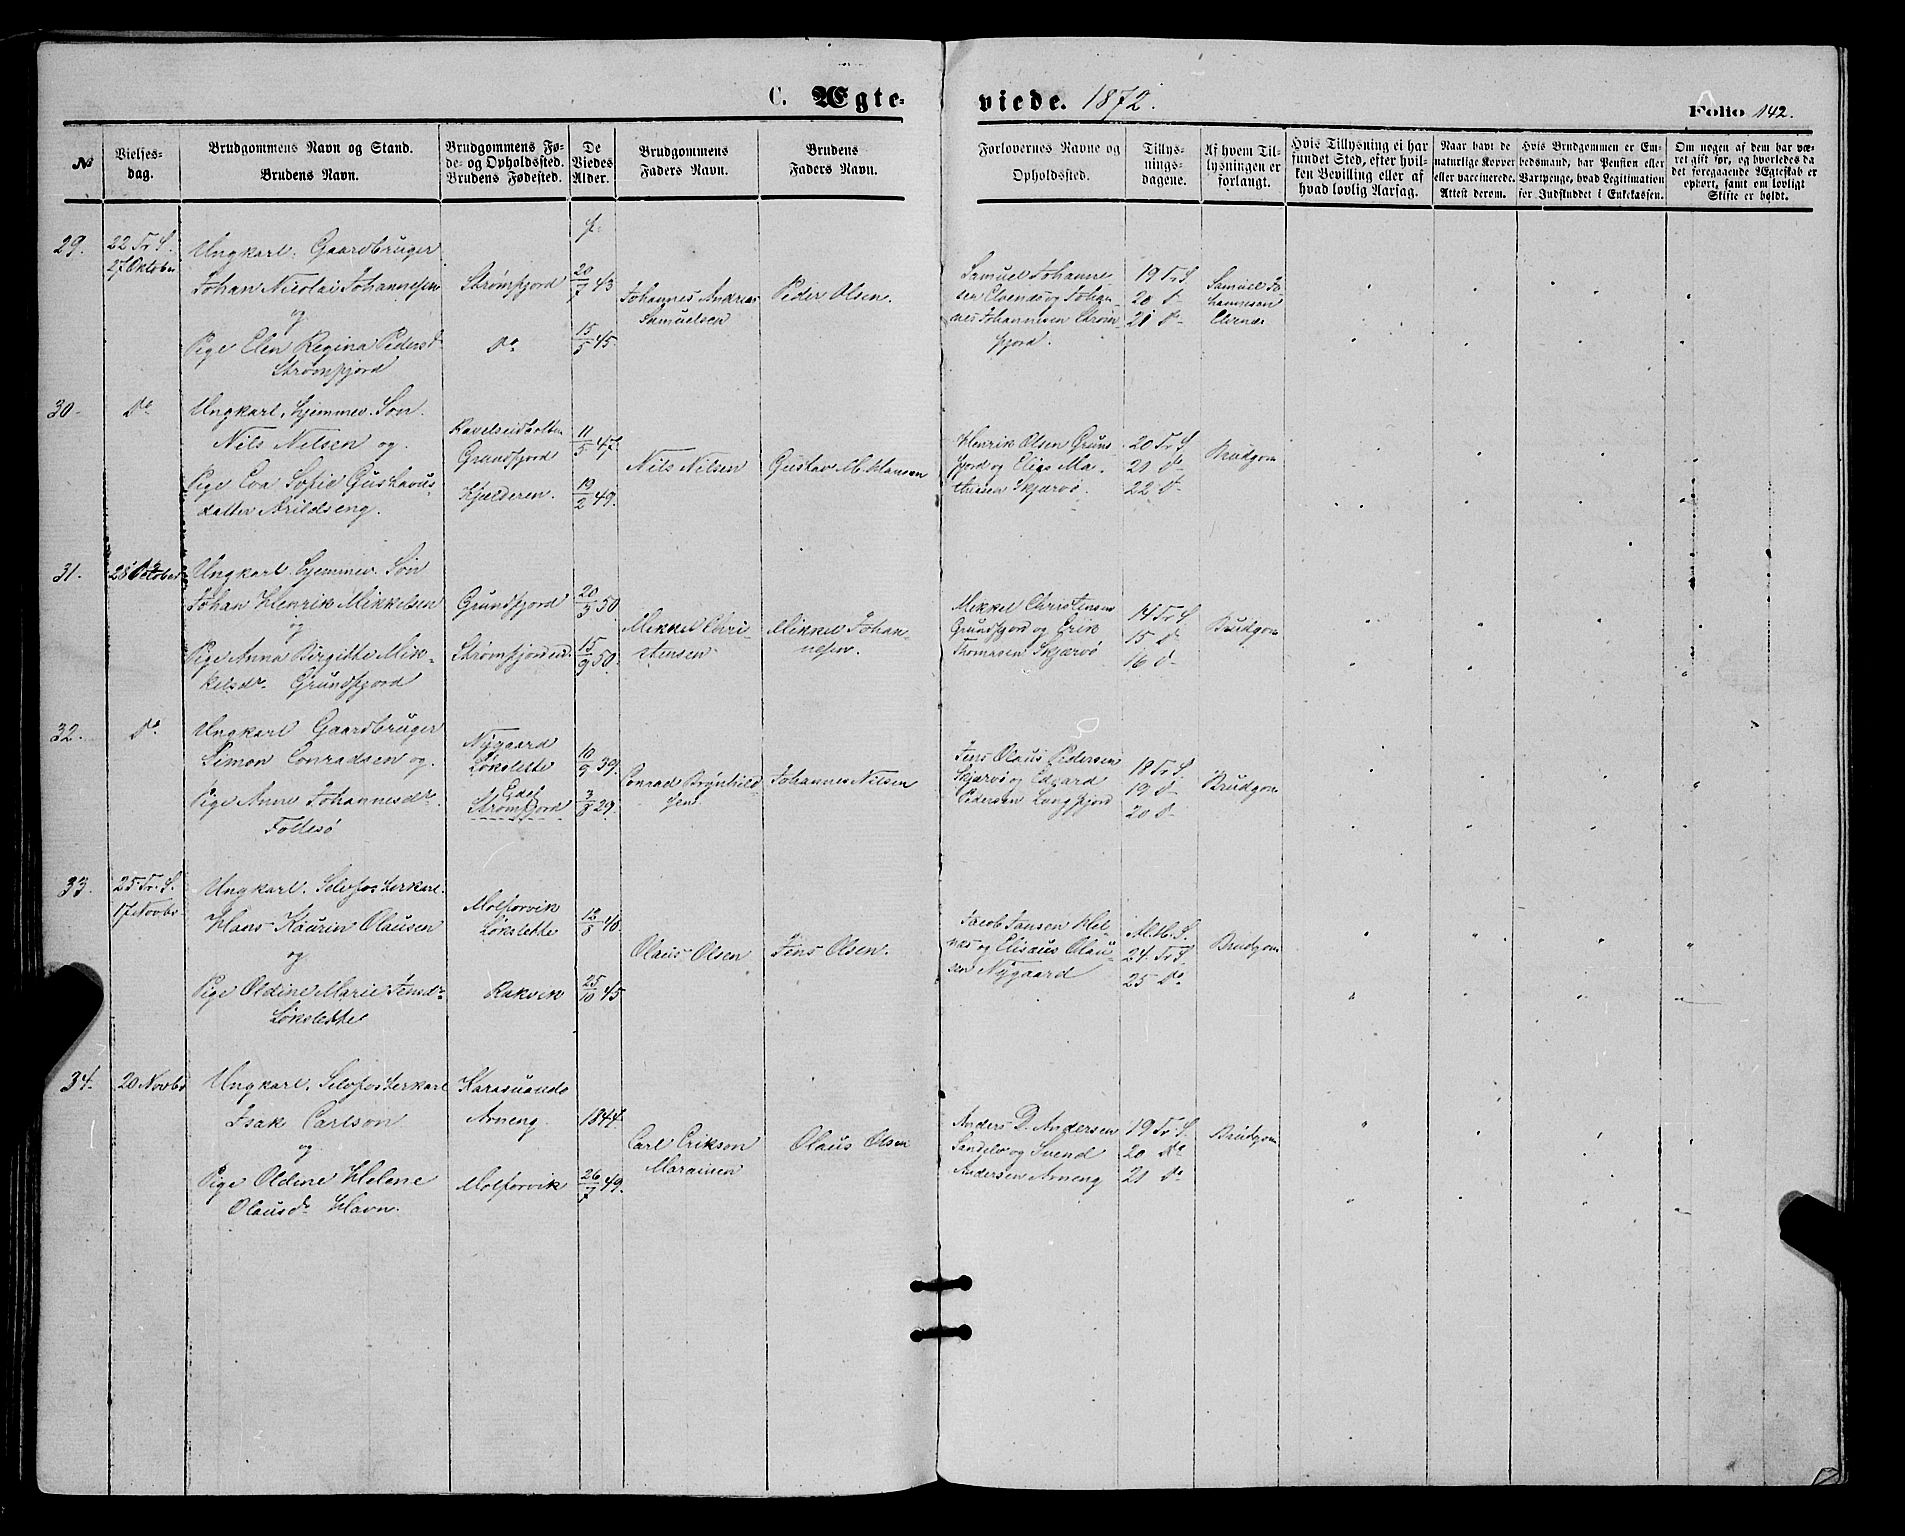 C. Ægte-
viede. 1872.
Folio 142.
No
Vielses-
dag.
Brudgommens Navn og Stand.
Brudens Navn.
Brudgommens Fø-
de- og Opholdssted.
Brudens Fødested.
De
Viedes
Alder.
Brudgommens
Faders Navn.
Brudens
Faders Navn.
Forlovernes Navne og
Opholdssted.
Tillys-
nings-
dagene.
Af hvem Til-
lysningen er
forlangt.
Hvis Tillysning ei har
fundet Sted, efter hvil-
ken Bevilling eller af
hvad lovlig Aarsag.
Naar havt de
naturlige Kopper
eller vaccinerede.
Attest derom.
Hvis Brudgommen er Em-
bedsmand, har Pension eller
Vartpenge, hvad Legitimation
for Indskuddet i Enkekassen.
Om nogen af dem har væ-
ret gift før, og hvorledes da
det foregaaende Ægteskab er
ophørt, samt om lovligt
Skifte er holdt.
29.
22 Tr S.
27 Oktober
Ungkarl. Gaardbruger
Johan Nicolai Johannesen
og
Pige Elen Regina Pedersd
Strømfjord
Strømfjord
Do
f.
20/7 43
15/5 45.
Johannes Andreas
Samuelsen
Peder Olsen.
Samuel Johanne-
sen Elvenes og Johan-
nes Johannesen Strøm-
fjord.
19 Tr S
20 D
21 D
Samuel Jo
hannesen
Elvenes
30.
Do
Ungkarl, hjemmev. Søn.
Nils Nilsen og
Pige Eva Sofie Gusthavus-
datter Arildseng.
Ravelseidbotten
Grundfjord
Kjælderen.
11/5 47.
19/2 49.
Nils Nilsen
Gustav M. Hansen
Henrik Olsen Grund
fjord og Elias Ma-
thiesen Skjærvø.
20 Tr S
21 Do
22 D
Brudgom
31.
28 October
Ungkarl. hjemmev. Søn
Johan Henrik Mikkelsen
og
Pige Anna Birgitte Mik-
kelsdr. Grundfjord
Grundfjord
Strømfjordeid.
20/3 50
15/9 50.
Mikkel Chri-
stensen
Mikkel Johan-
nesen.
Mikkel Christensen
Grundfjord og Erik
Thomasen Skjærvø
14 Tr S
15 D
16 D
Brudgom
32.
Do
Ungkarl Gaardbruger
Simon Conradsen og
Pige Anne Johannesdr.
Follesø
Nygaard
Løkslette
Eidet
Strømfjord
10/9 39.
3/8 29.
Conrad Brynhild-
sen
Johannes Nilsen
Jens Olaus Pedersen
Skjærvø og Edvard
Pedersen Langfjord
18 Tr S.
19 D
20 D
Brudgom
33.
25 Tr. S.
17 Novbr
Ungkarl. Selvfosterkarl.
Hans Kaurin Olausen
og
Pige Oldine Marie Jensdr
Løkslette
Molforvik
Løkslette
Rakvik
12/8 48.
25/10 45
Olaus Olsen
Jens Olsen.
Jacob Jansen Hel-
nes og Elisæus Olau-
sen Nygaard
M.H.S.
24. Tr S
25 Do
Brudgom
34.
20 Novbr
Ungkarl, Selvfosterkarl
Isak Carlson
og
Pige Oldine Helene
Olausdr Havn.
Karasuando
Arneng.
Molforvik
1844.
26/7 49.
Carl Erikson
Marainen
Olaus Olsen
Anders D. Andersen
Sandelv og Svend
Andersen Arneng
19 Tr. S.
20 Do
21 Do
Brudgom